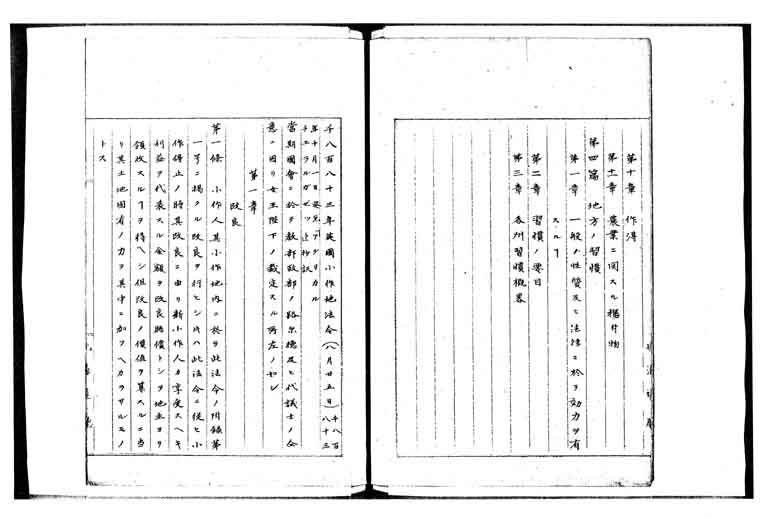 第十章 作得
第十一章 農業ニ関スル構井物
第四篇 地方ノ習慣
第一章 一般ノ性質及ヒ法律ニ於テ効力ヲ有
スルヿ
第二章 習慣ノ要目
第三章 各州習慣概畧
千八百八十三年英國小作地法令(八月廿五日)
千八百八十三
年十月一日發兌アグリカル
チユラルガゼツト抄訳
當期國會ニ於テ教部政部ノ路尓徳及ヒ代議士ノ
意ニ因リ女王陛下ノ裁定スル所左ノ如シ
第一章
改良
第一條 小作人其小作地内ニ於テ此法令ノ附録第
一号ニ掲クル改良ヲ行ヒシ片ハ此法令ニ従ヒ小
作停止ノ時其改良ニ由リ新小作人カ享受スヘキ
利益ヲ代表スル金額ヲ改良賠償トシテ地主ヨリ
領收スルヿヲ得ヘシ但改良ノ價値ヲ算スルニ當
リ其土地固有ノ力ヲ其中ニ加フヘカラサルモノ
トス